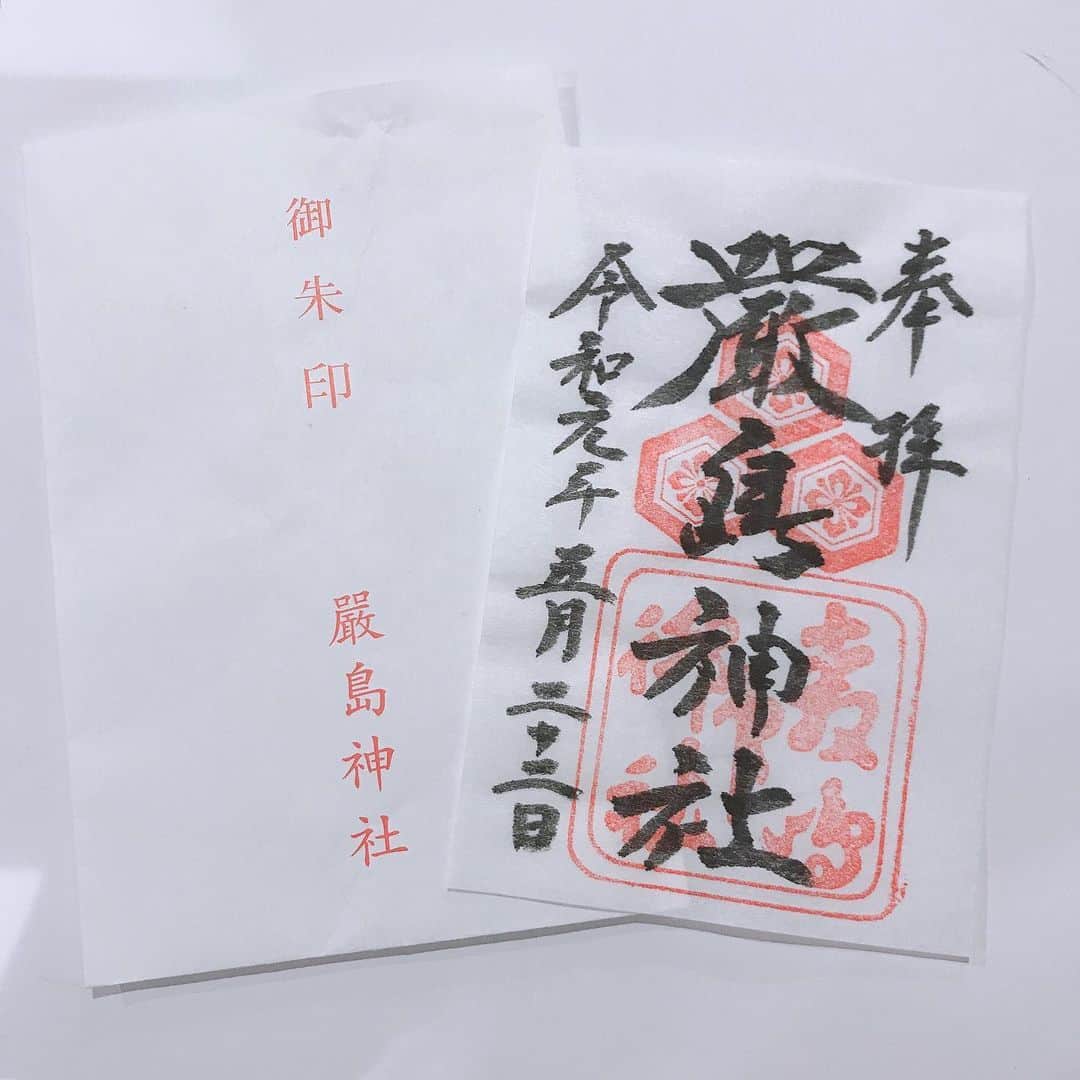 御朱印
嚴島神社
奉拝
嚴島神社
令和元年五月二十三日